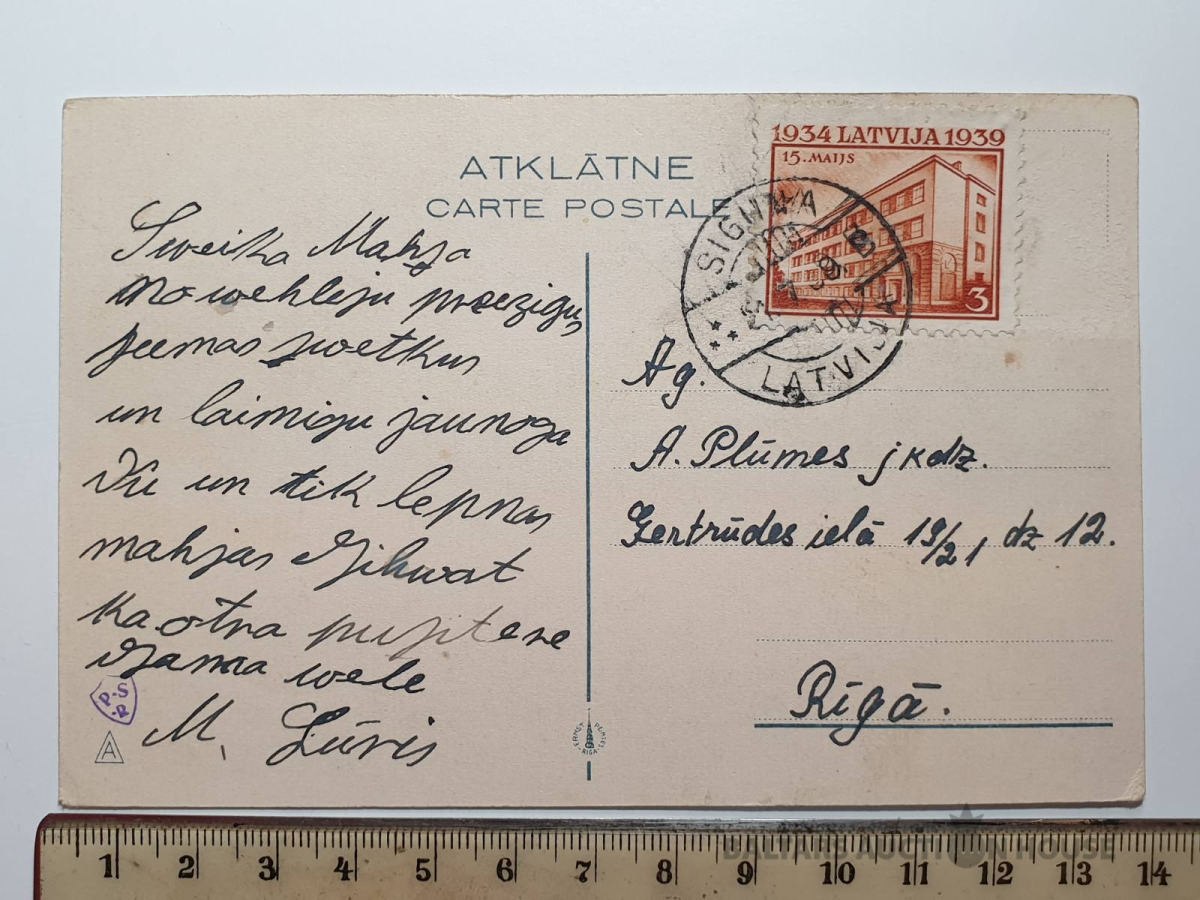 ATKLĀTNE
CARTE POSTALE
1934 LATVIJA 1939
15. MAIJS
3
SIGULDA
LATVIJA
Sweika Mahja
nowehleju preezigus
seemas swetkus
un laimigu jaunoga
un tik lepnas
mahjas
Ka otra
wele
M. Lūris
Ag.
A. Plūmes jkdz.
Ģertrūdes ielā 19/21, dz 12.
Rīgā.
P.S.R.
A
RIGA
1 2 3 4 5 6 7 8 9 10 11 12 13 14
BALTARS AUCTION HOUSE